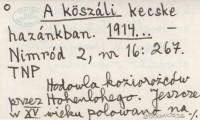 A kőszáli kecske
hazánkban. 1914... –
Nimród 2, nr 16: 267.
TNP
Hodowla koziorożców
przez Hohenlohego. Jeszcze
w XV wieku polowano na